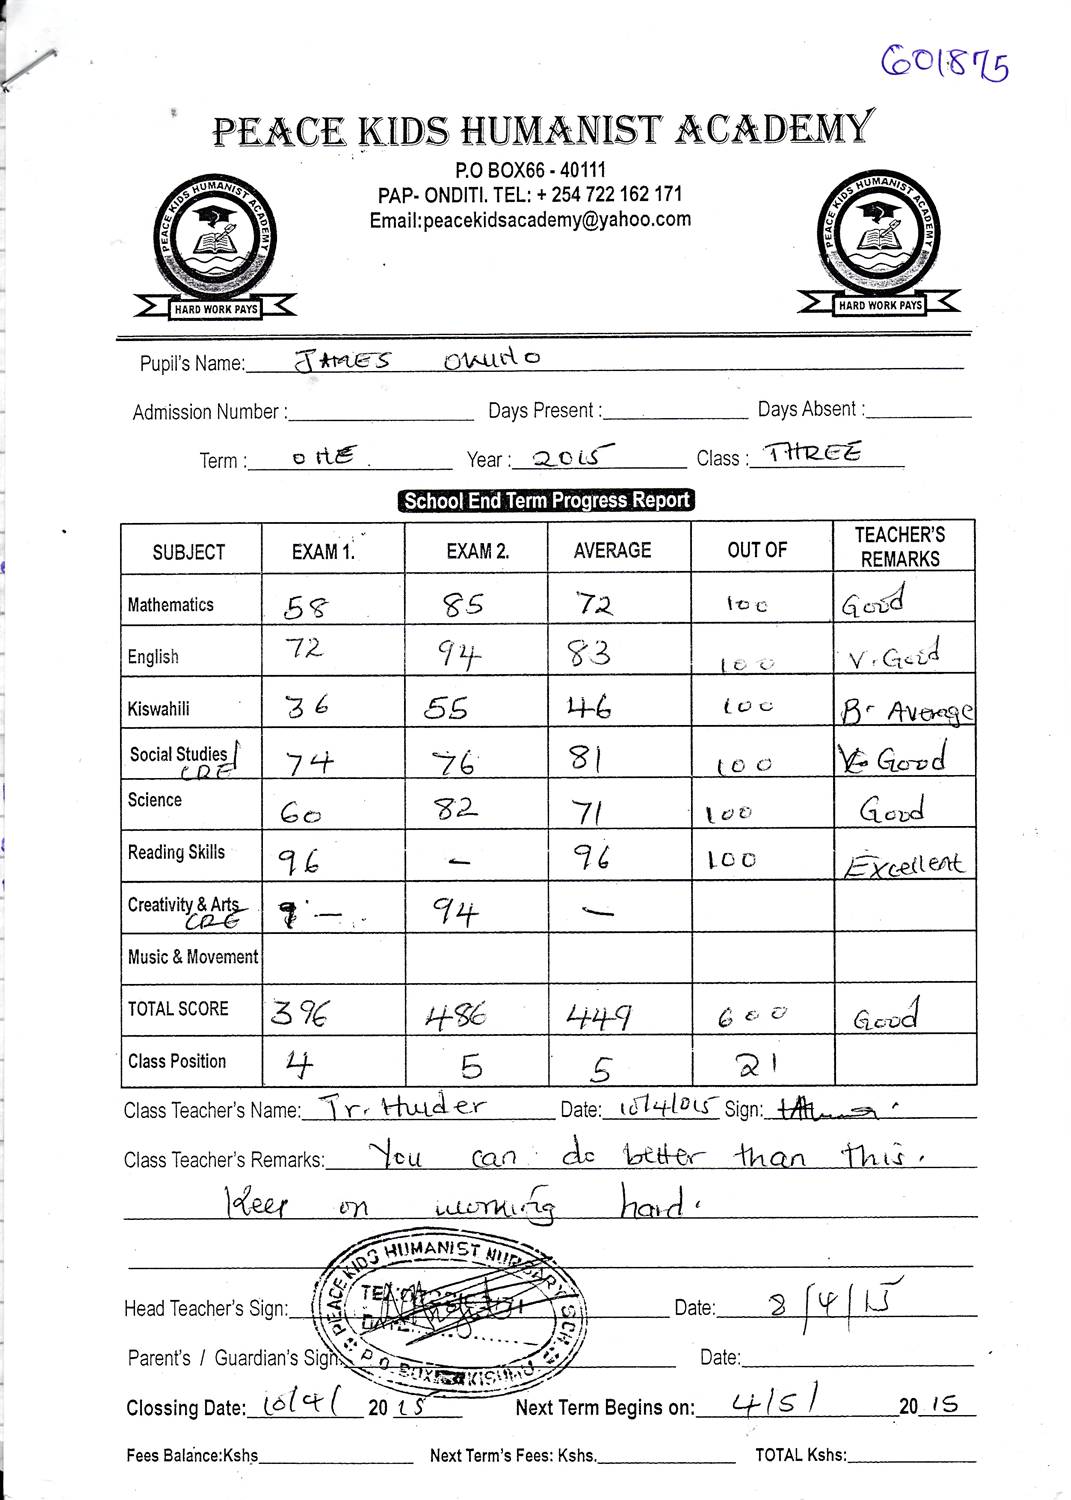 G01875
PEACE KIDS HUMANIST ACADEMY
P.O BOX66 - 40111
PAP- ONDITI. TEL: + 254 722 162 171
Email:peacekidsacademy@yahoo.com
PEACE KIDS HUMANIST ACADEMY
HARD WORK PAYS
PEACE KIDS HUMANIST ACADEMY
HARD WORK PAYS
Pupil's Name: JAMES
Admission Number : Days Present : Days Absent :
Term : ONE Year : 2015 Class : THREE
School End Term Progress Report
SUBJECT EXAM 1. EXAM 2. AVERAGE OUT OF TEACHER'S REMARKS
Mathematics 58 85 72 100 Good
English 72 94 83 100 V. Good
Kiswahili 36 55 46 100 B- Average
Social Studies/ CRE 74 76 81 100 V Good
Science 60 82 71 100 Good
Reading Skills 96 - 96 100 Excellent
Creativity & Arts CRE - 94 -
Music & Movement
TOTAL SCORE 396 486 449 600 Good
Class Position 4 5 5 21
Class Teacher's Name: Tr. Date: 10/4/015 Sign:
Class Teacher's Remarks: You can do better than this.
Keep on working hard.
PEACE KIDS HUMANIST NURSARY SCH.
TEL:
DATE
P.O. BOX KISUMU
Head Teacher's Sign: Date: 8/4/15
Parent's / Guardian's Sign. Date:
Clossing Date: 10/4/ 2015 Next Term Begins on: 4/5/ 2015
Fees Balance:Kshs Next Term's Fees: Kshs. TOTAL Kshs: